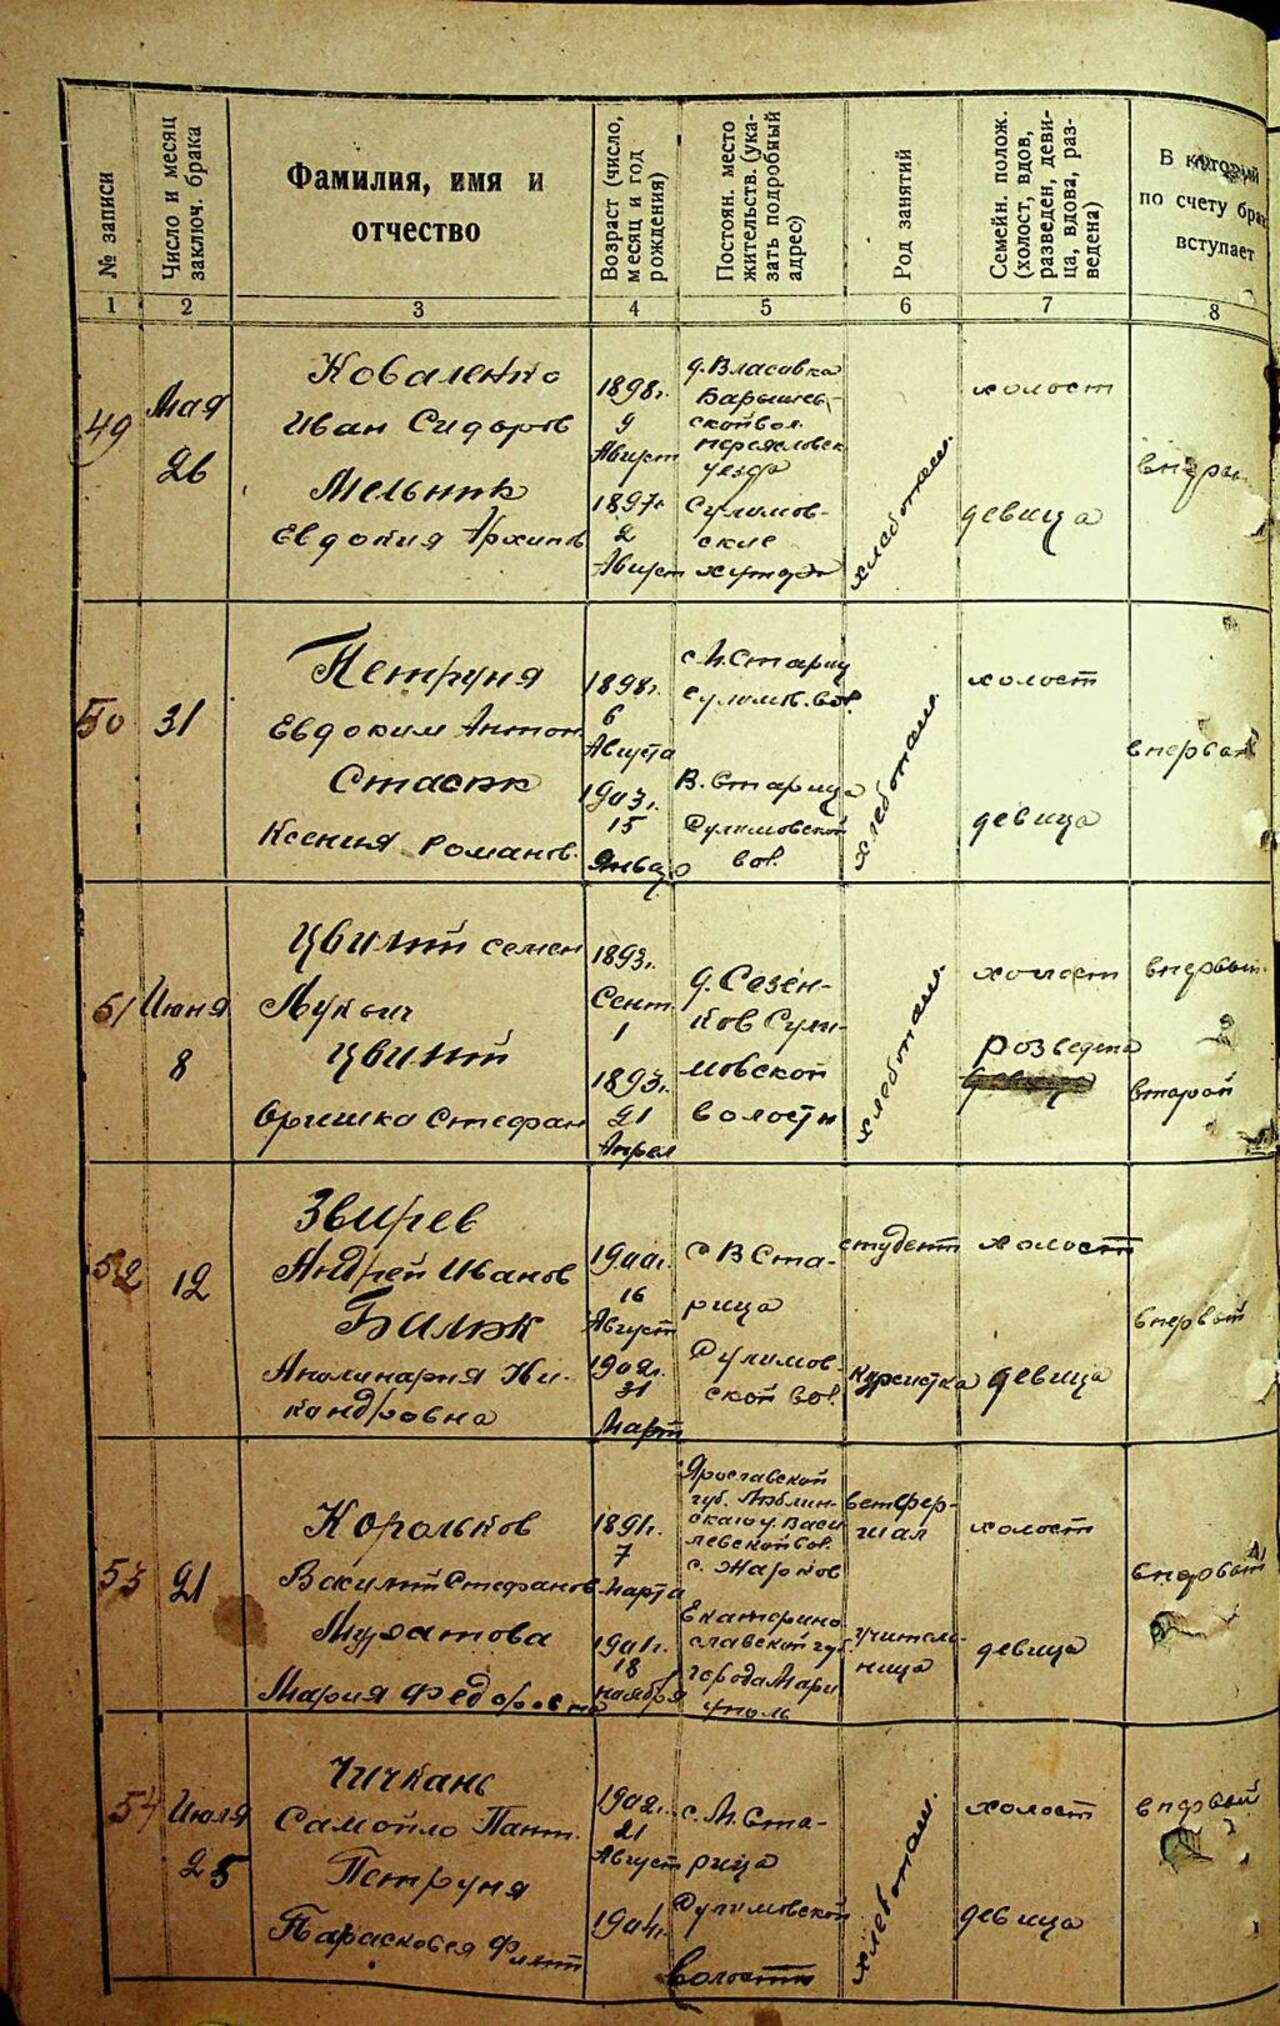 № записи
Число и месяц
заключ. брака
Фамилия, имя и
отчество
Возраст (число,
месяц и год
рождения)
Постоян. место
жительств. (ука-
зать подробный
адрес)
Род занятий
Семейн. полож.
(холост, вдов,
разведен, деви-
ца, вдова, раз-
ведена)
В который
по счету брак
вступает
1 2 3 4 5 6 7 8
49
Мая
26
Коваленко
Иван Сидоров
Мельник
Евдокия Архипов
1898г.
9
Август
1897г
2
Август
д. Власовка
Барышев-
ской вол.
переясловск
уезда
Сулимов-
ские
хутора
хлебопаш.
холост
девица
50
31
Петруня
Евдоким Антон
Стасюк
Ксения Романов.
1898г.
6
Августа
1903г.
15
Январ
с М. Стариц
Сулимов. вол.
В. Старица
Сулимовской
вол.
хлебопаш.
холост
девица
51
Июня
8
Цвилий Семен
Лукич
Цвилий
Оришка Стефан
1893г.
Сент.
1
1893г.
21
Апрел
д. Сезен-
ков Сули-
мовской
волости
хлебопаш.
холост
розведена
девица
второй
52
12
Звирев
Андрей Иванов
Билык
Аполинария Ни-
кандровна
1900г.
16
Август
1902г.
31
Март
с В Ста-
рица
Сулимов-
ской вол.
студент
курсистка
холост
девица
впервый
53
21
Корольков
Василий Стефанов
Муратова
Мария Федоровна
1891г.
7
Марта
1901г.
18
ноября
Ярославской
губ. Люблин-
скаго у. Васи
левской вол.
с. Жарков
Екатерино
славской губ.
города Мари
уполь
ветфер-
шал
учитель-
ница
холост
девица
впервый
54
Июля
25
Чичкань
Самойло Пант.
Петруня
Парасковея Филип
1902г.
21
Август
1904г.
с. М. Ста-
рица
Сулимовской
волости
хлебопаш.
холост
девица
впервый